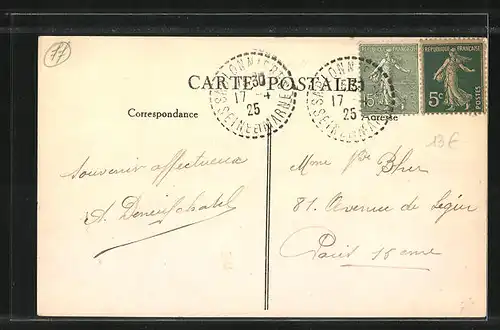 77
CARTE POSTALE
SABLONNIERES
30
17 -4
25
SEINE ET MARNE
SABLONNIERES
17 -
25
SEINE ET MARNE
REPUBLIQUE FRANÇAISE
15c
REPUBLIQUE FRANÇAISE
5c
POSTES
Correspondance
Adresse
13€
Souvenir affectueux
A.
Mme Vve
81. Avenue de Ségur
Paris 15eme